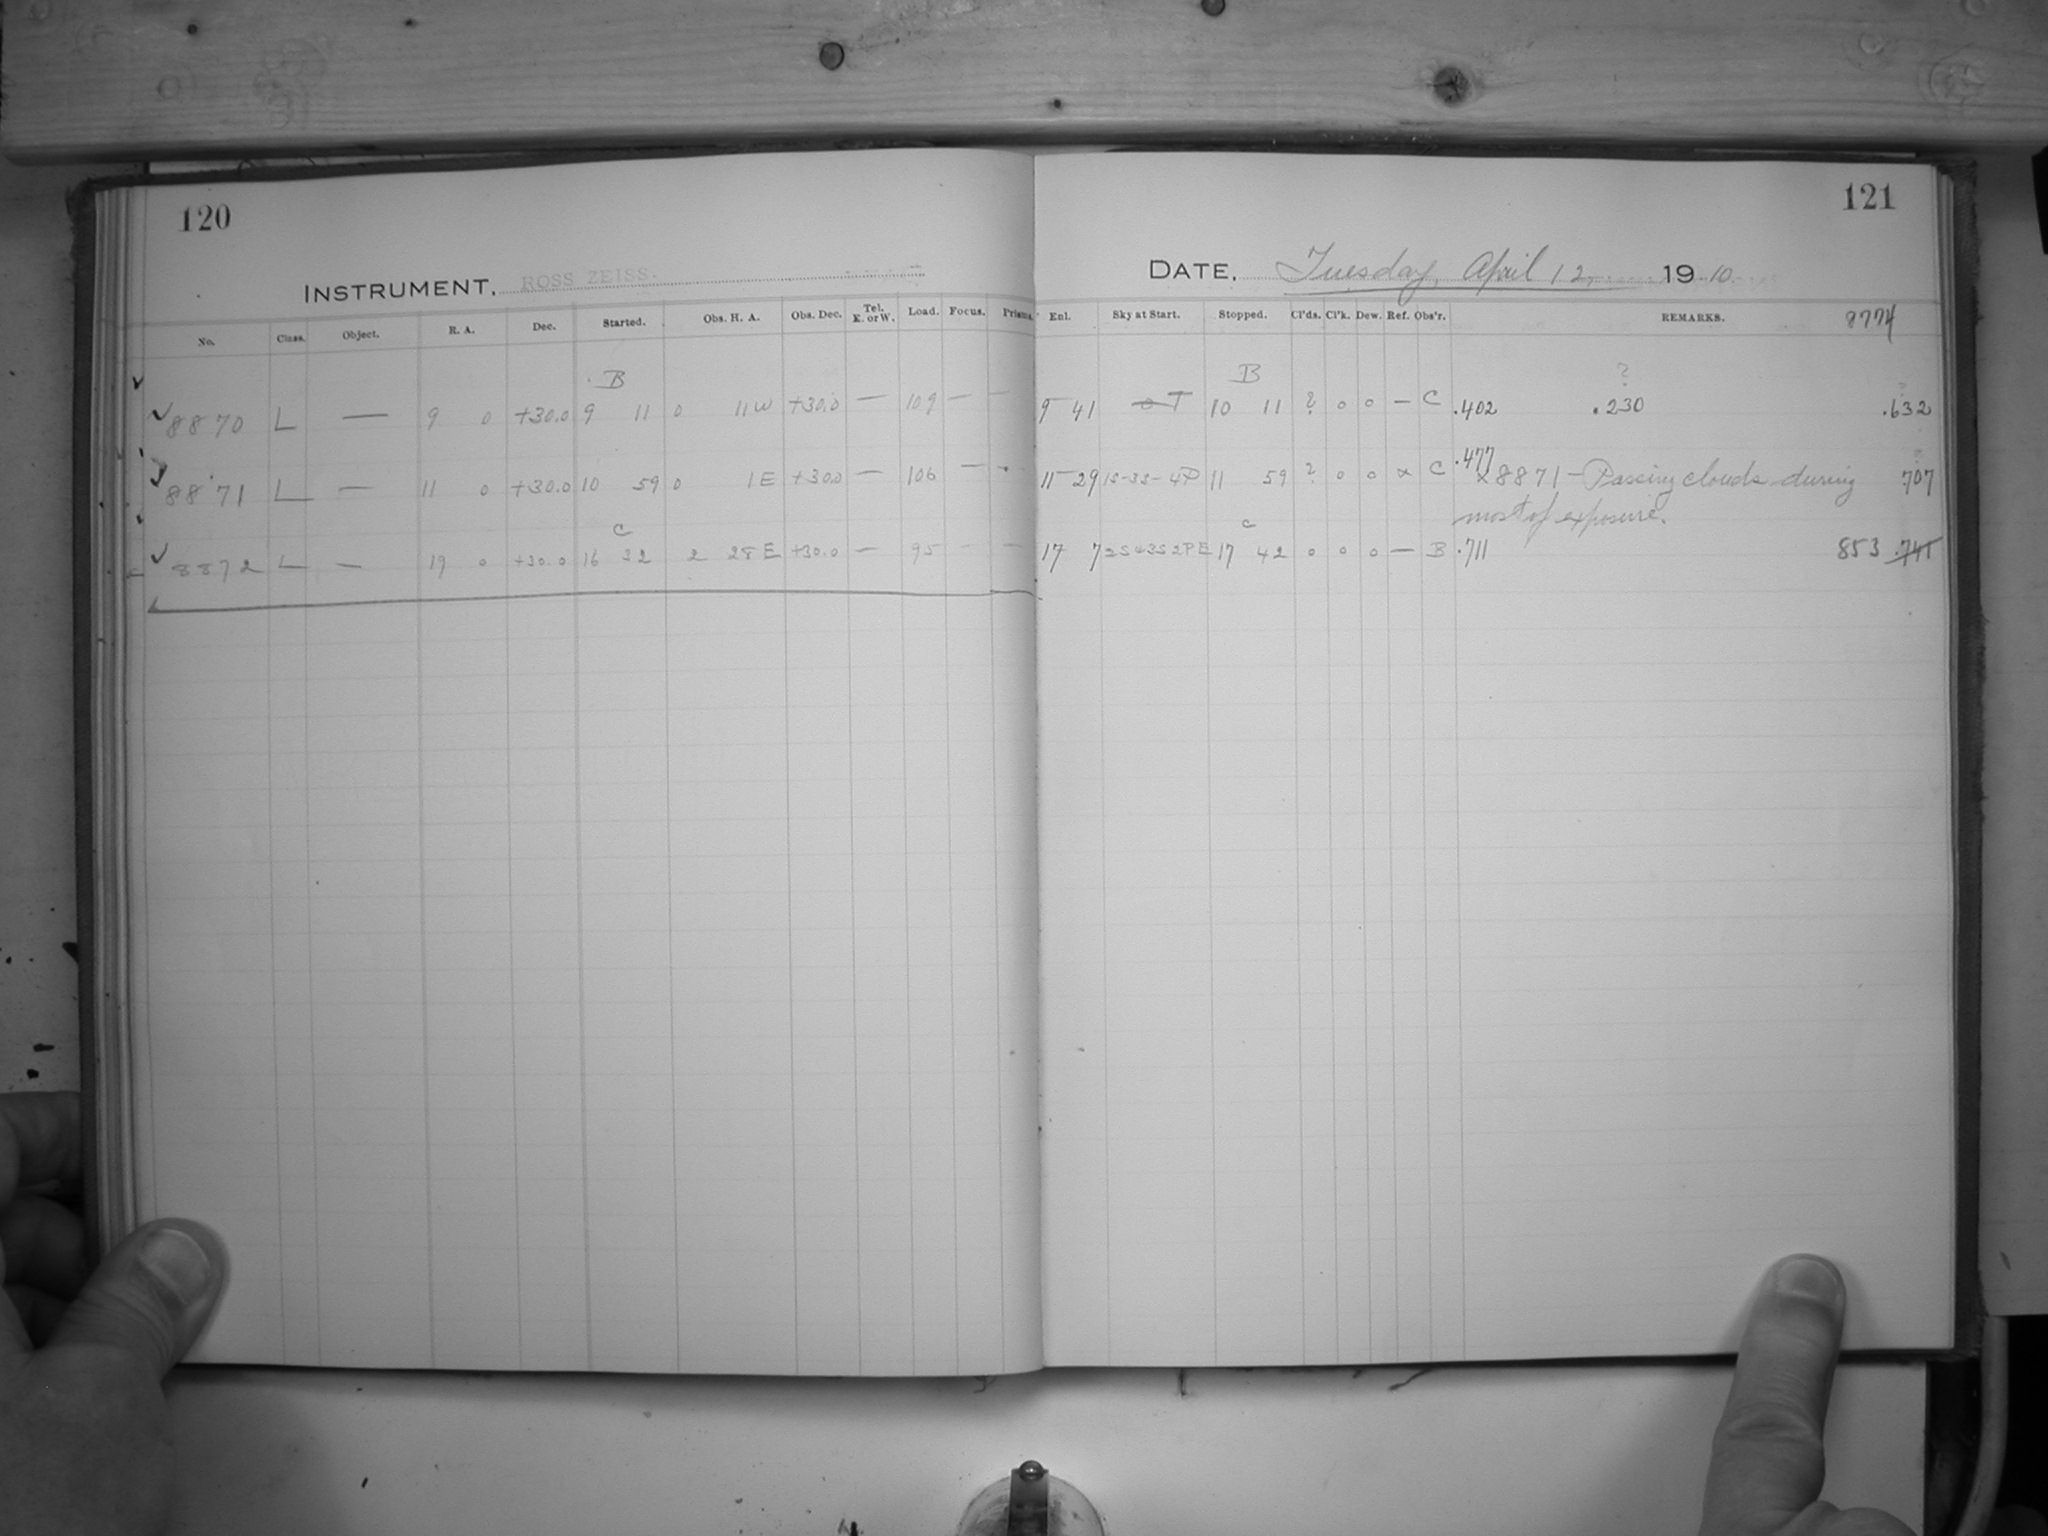 120
INSTRUMENT, ROSS ZEISS.
No. Class. Object. R. A. Dec. Started. Obs. H. A. Obs. Dec. Tel. E. or W. Load. Focus. Prisms.
B
8870 L — 9 0 +30.0 9 11 0 11 W +30.0 — 109 — —
8871 L — 11 0 +30.0 10 59 0 1 E +30.0 — 106 —
C
8872 L — 19 0 +30.0 16 32 2 28 E +30.0 — 95 — —
121
DATE, Tuesday, April 12, 1910.
Enl. Sky at Start. Stopped. Cl'ds. Cl'k. Dew. Ref. Obs'r. REMARKS. 8774
B ?
9 41 10 11 ? 0 0 — C .402 .230 .632
.477
11 29 1S-3S-4P 11 59 ? 0 0 x C x8871—Passing clouds during 707
most of exposure.
C
17 7 17 42 0 0 0 — B .711 853 .741